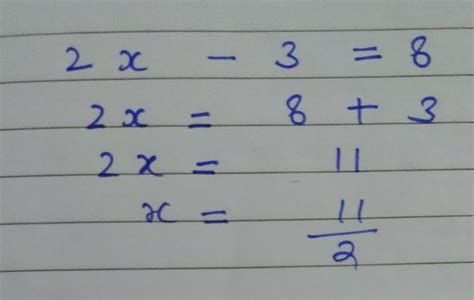 2x - 3 = 8
2x = 8 + 3
2x = 11
x = 11/2